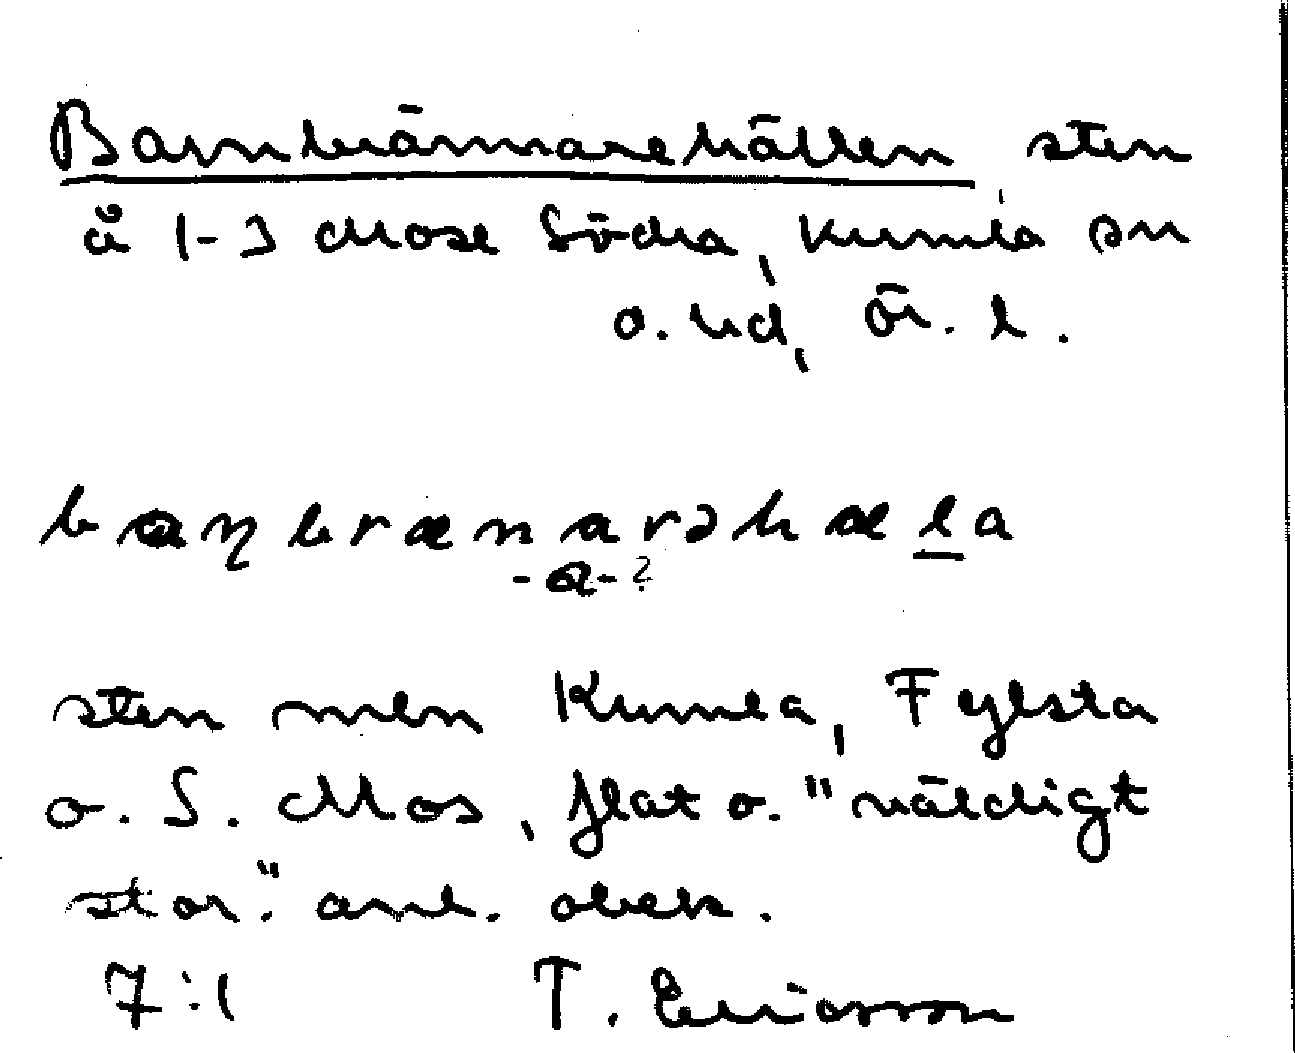 Barnbrännarehällen, sten
å 1-3 Mose Södra, Kumla sn
o. hd, Ör. l.
baɳbrænarəhæla
-ɑ-?
sten mln Kumla, Fylsta
o. S. Mos, flat o. "väldigt
stor". anl. obek.
7:1 T. Ericsson